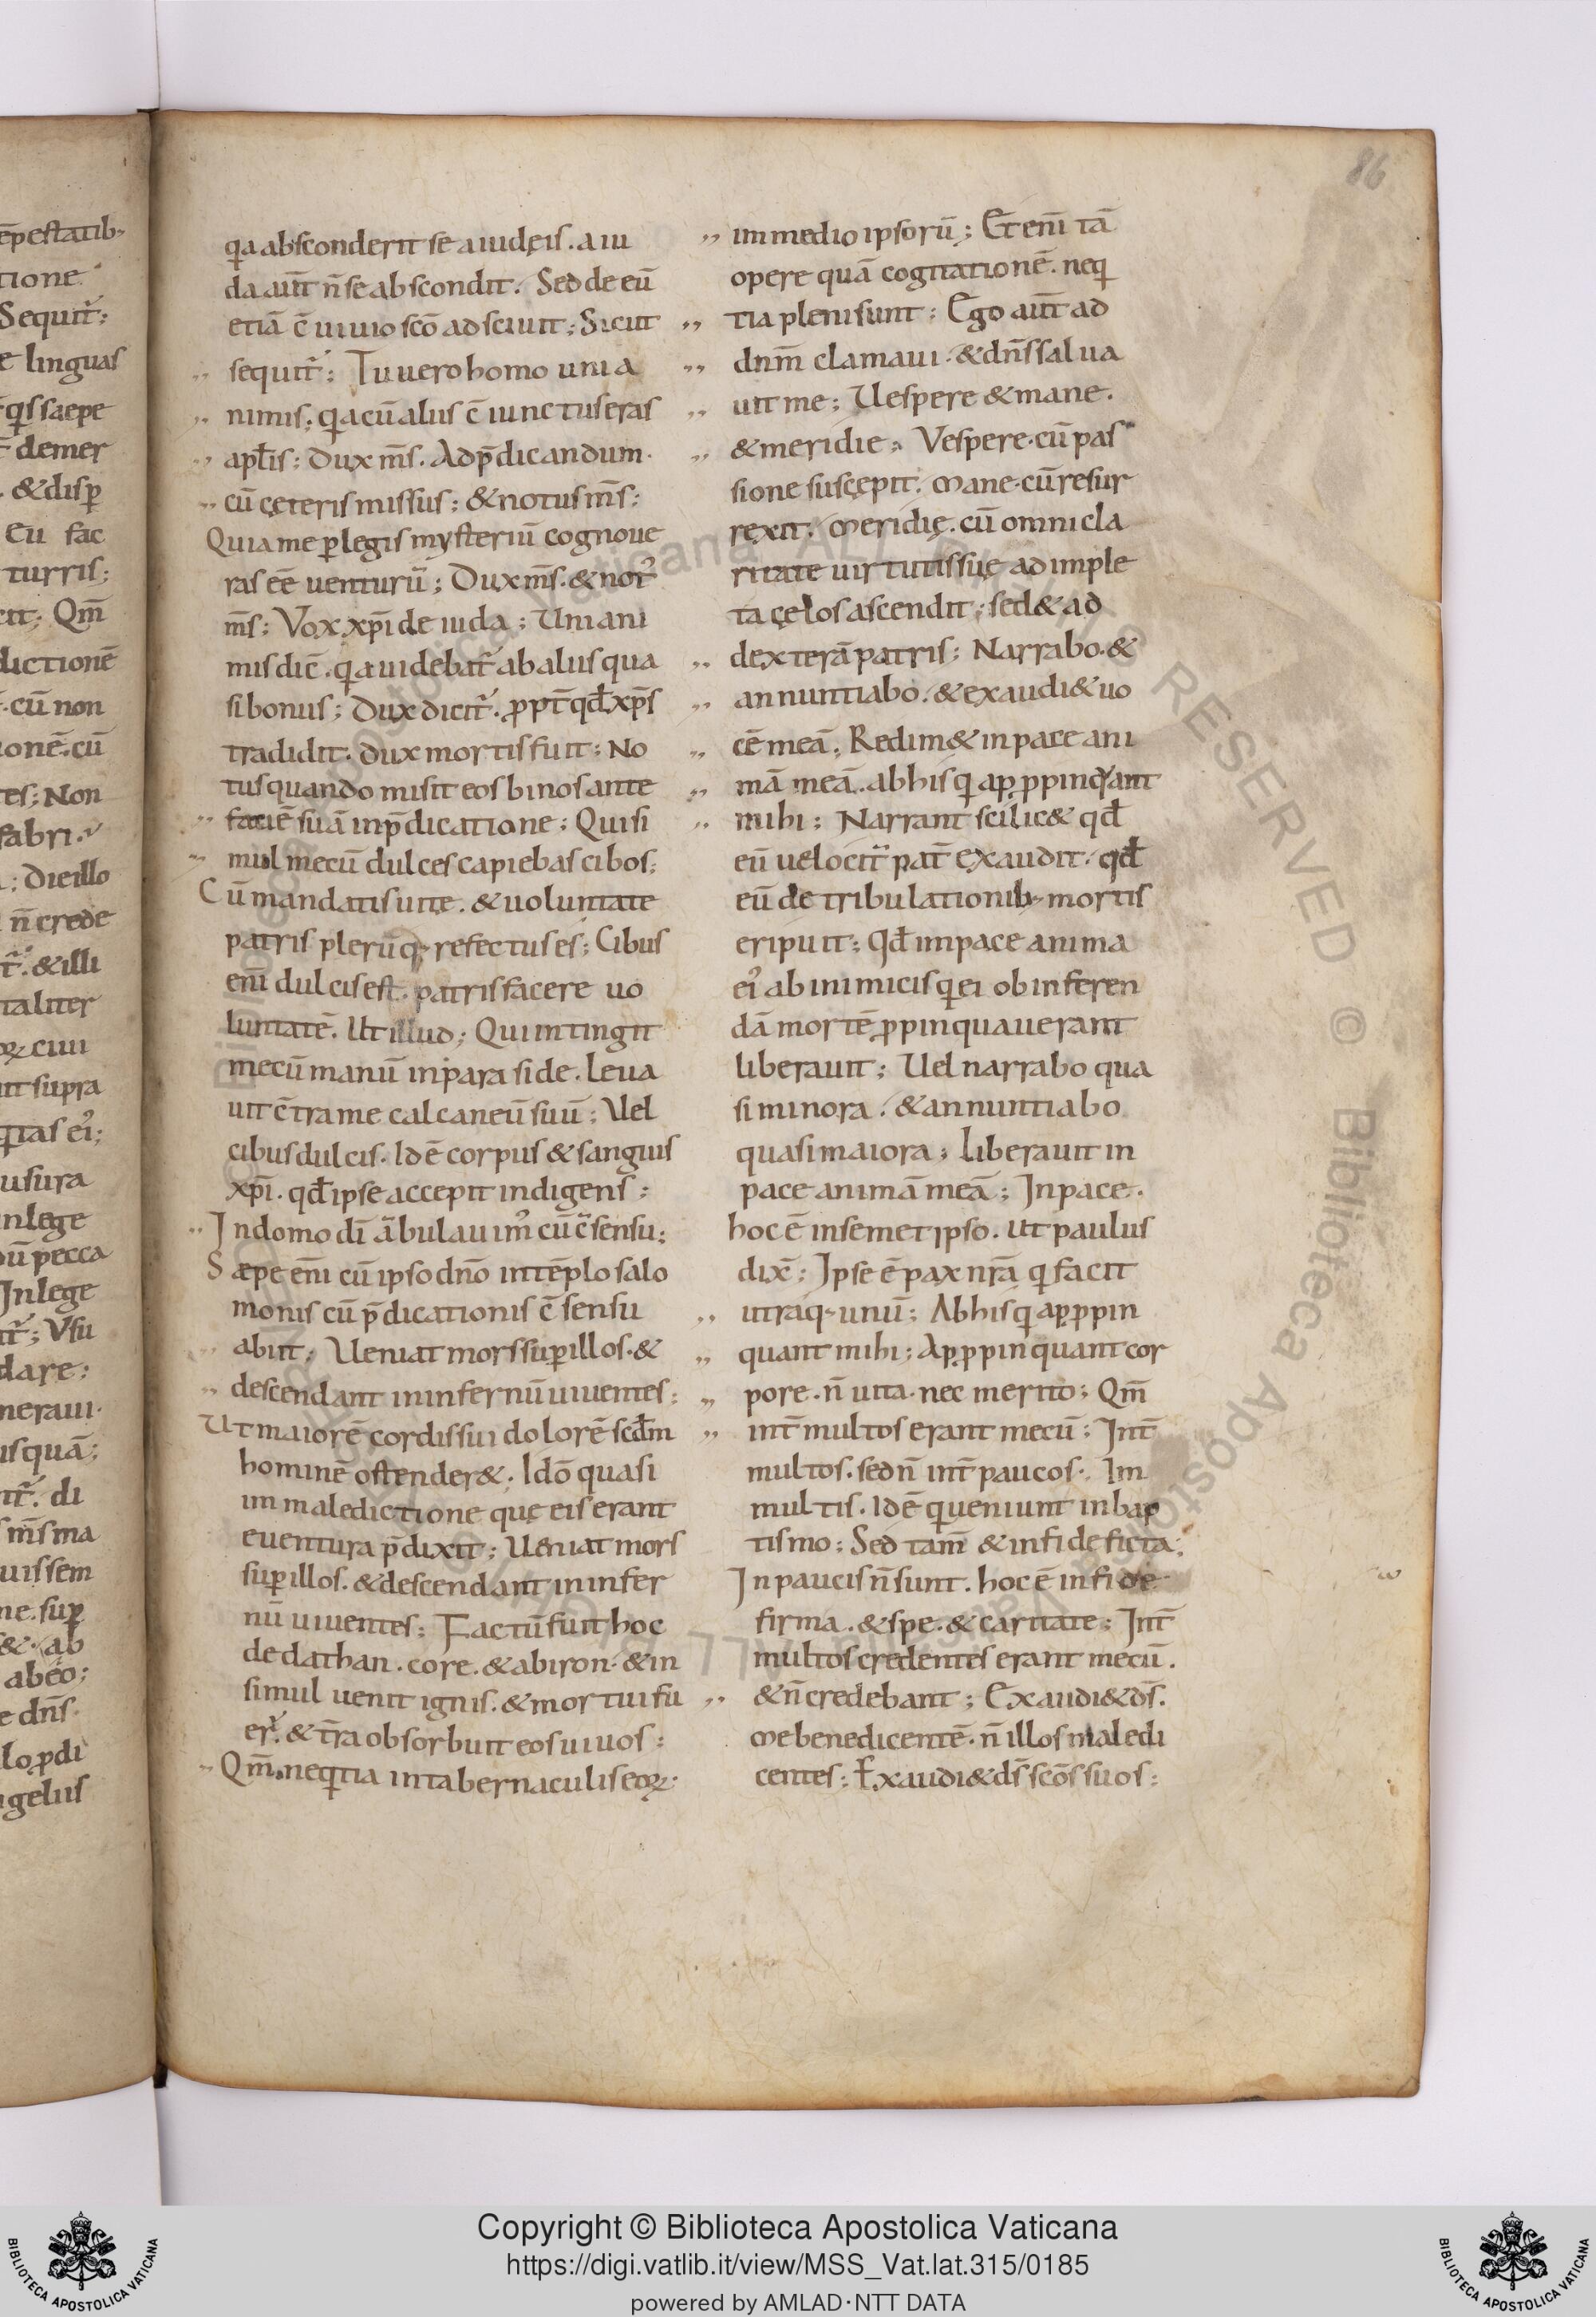 86
q̇a absconderit se a iudęis. a iu
da aut̄ n̄ se abscondit. Sed de eū
etiā ē in uio scō ad sciuit; Sicut
sequit᷑; Tu uero homo unia
nimis; q̇a cū aliis c̄ iunctus eras
apl̄is; Dux m̄s. Ad p̄dicandum.
cū ceteris missus; & notus m̄s;
Quia me ꝑ legis mysteriū cognoue
ras eē uenturū; Dux m̄s. & not᷒
m̄s; Vox xp̄i de iuda; Unani
mis dic̄. q̇a uidebat᷑ ab aliis qua
si bonus; Dux dicit᷑. ꝓpt̄ qđ xp̄s
tradidit. dux mortis fuit; No
tus quando misit eos binos ante
faciē suā in p̄dicatione; Qui si
mul mecū dulces capiebas cibos;
Cū mandatis uite. & uoluntate
patris plerūq; refectus es; Cibus
eni̅ dulcis est. patris facere uo
luntatē. Ut illud; Qui intingit
mecū manū in paraside. leua
uit c̄tra me calcaneū suū; Vel
cibus dulcis. Id ē corpus & sanguis
xp̄i. qđ ipse accepit indigens;
In domo dī ābulauim᷒ cū c̄sensu;
Sæpe eni̅ cū ipso dn̄o in tēplo salo
monis cū p̄dicationis c̄sensu
abiit; Ueniat mors suꝑ illos. &
descendant in infernū uiuentes;
Ut maiorē cordis sui dolorē scđm
hominē ostender&; Idō quasi
in maledictione quę eis erant
euentura p̄dixit; Ueniat mors
suꝑ illos. & descendant in infer
nū uiuentes; Factū fuit hoc
de dathan. core. & abiron. & in
simul uenit ignis. & mortui fu
er᷑. & t̄ra obsorbuit eos uiuos;
Qm̄ neq̇tia in tabernaculis eoꝝ.
in medio ipsorū; Et eni̅ tā
opere quā cogitationē. neq̇
tia pleni sunt; Ego aut̄ ad
dnm̄ clamaui. & dn̄s salua
uit me; Uespere & mane.
& meridie; Vespere. cū pas
sione suscepit. Mane. cū resur
rexit. Meridię. cū omni cla
ritate uirtutis suę ad imple
ta cęlos ascendit; sed & ad
dexterā patris; Narrabo. &
annuntiabo. & exaudi& uo
cē meā; Redim& in pace ani
mā meā. ab his q̇ apꝓpinq̇ant
mihi; Narrant scilic& qđ
eū uelocit᷑ pat̄ exaudit. qđ
eū de tribulationib; mortis
eripuit; Qđ in pace anima
ei᷒ ab inimicis q̇ ei ob inferen
dā mortē ꝓpinquauerant
liberauit; Uel narrabo qua
si minora. & annuntiabo
quasi maiora; Liberauit in
pace animā meā; In pace.
hoc ē in semet ipso. ut paulus
dix̄; Ipse ē pax nr̄a q̇ facit
utraq; unū; Ab his q̇ apꝓpin
quant mihi; Apꝓpinquant cor
pore. n̄ uita. nec merito; Qm̄
int̄ multos erant mecū; Int̄
multos. sed n̄ int̄ paucos. In
multis. Id ē q̇ ueniunt in bap
tismo; Sed tam̄ & in fide ficta;
In paucis n̄ sunt. hoc ē in fide
firma. & spe. & caritate; Int̄
multos credentes erant mecū.
& n̄ credebant; Exaudi& ds̄.
Me benedicentē. n̄ illos maledi
centes; Exaudi& ds̄ scōs suos;
Copyright © Biblioteca Apostolica Vaticana
https://digi.vatlib.it/view/MSS_Vat.lat.315/0185
powered by AMLAD·NTT DATA